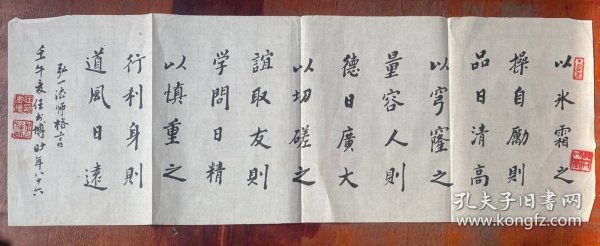 以氷霜之
操自勵則
品日清高
以穹窿之
量容人則
德日廣大
以切磋之
誼取友則
学問日精
以慎重之
行利身則
道風日遠
弘一法师格言
壬午夏任博时年八十六
孔夫子旧书网
www.kongfz.com